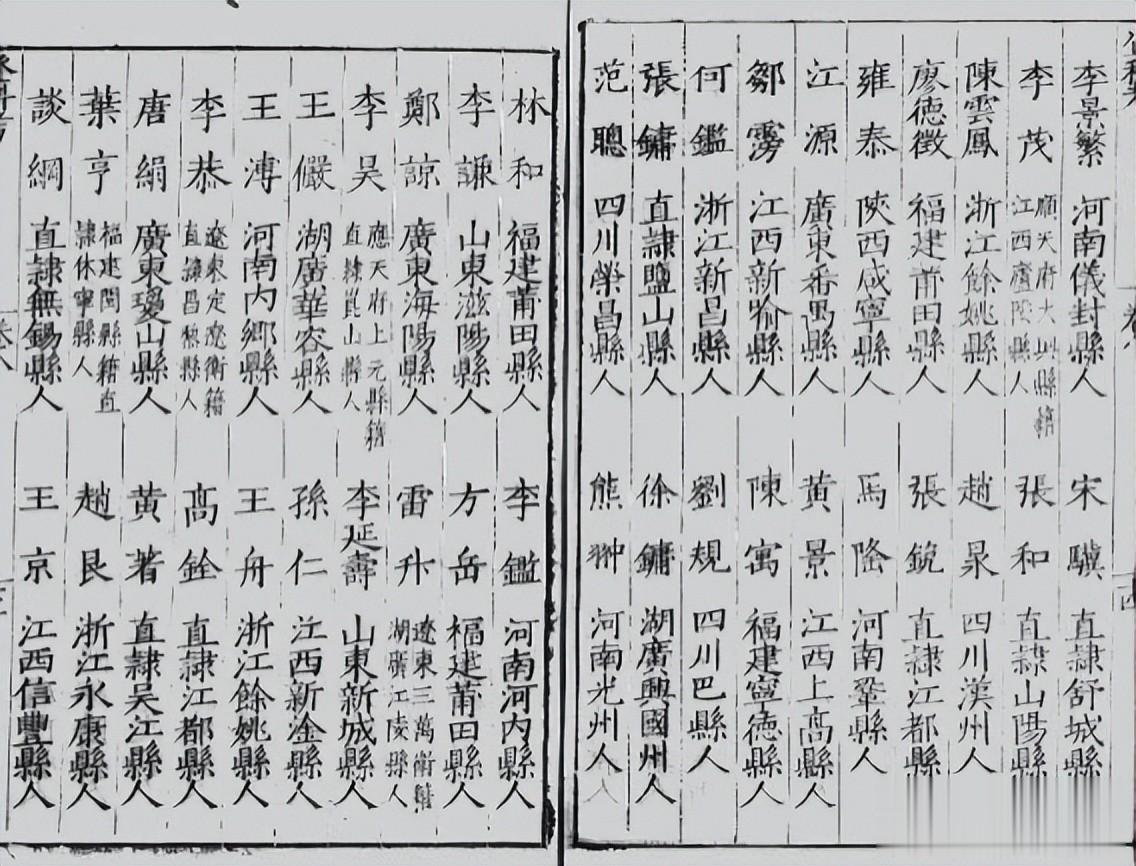 李景繁 河南儀封縣人 宋驥 直隸舒城縣人
李茂 順天府大興縣籍江西廬陵縣人 張和 直隸山陽縣人
陳雲鳳 浙江餘姚縣人 趙杲 四川漢州人
廖德徵 福建莆田縣人 張銳 直隸江都縣人
雍泰 陝西咸寧縣人 馬隆 河南鞏縣人
江源 廣東番禺縣人 黃景 江西上高縣人
鄒霶 江西新喻縣人 陳寓 福建寧德縣人
何鑑 浙江新昌縣人 劉規 四川巴縣人
張鏞 直隸鹽山縣人 徐鏞 湖廣興國州人
范聰 四川榮昌縣人 熊翀 河南光州人
林和 福建莆田縣人 李鑑 河南河內縣人
李謙 山東滋陽縣人 方岳 福建莆田縣人
鄭諒 廣東海陽縣人 雷升 遼東三萬衛籍湖廣江陵縣人
李吳 應天府上元縣籍直隸崑山縣人 李延壽 山東新城縣人
王儼 湖廣華容縣人 孫仁 江西新淦縣人
王溥 河南內鄉縣人 王舟 浙江餘姚縣人
李恭 遼東定遼衛籍直隸昌黎縣人 高銓 直隸江都縣人
唐絹 廣東瓊山縣人 黃著 直隸吳江縣人
葉亨 福建閩縣籍直隸休寧縣人 趙艮 浙江永康縣人
談綱 直隸無錫縣人 王京 江西信豐縣人